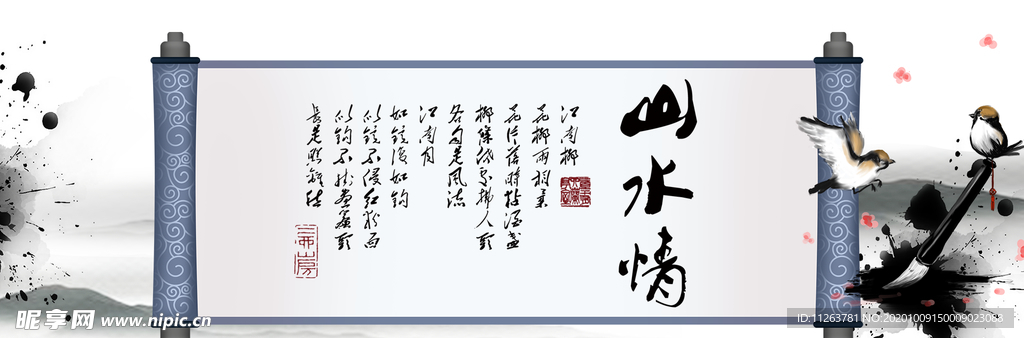 山水情
江南柳
花柳两相柔
花片落時粘酒盏
柳條低处拂人頭
各自是風流
江南月
如鏡復如鈎
似鏡不侵紅粉面
似鈎不挂畫簾頭
長是照離愁
昵享网 www.nipic.cn
ID:11263781 NO:20201009150009023088